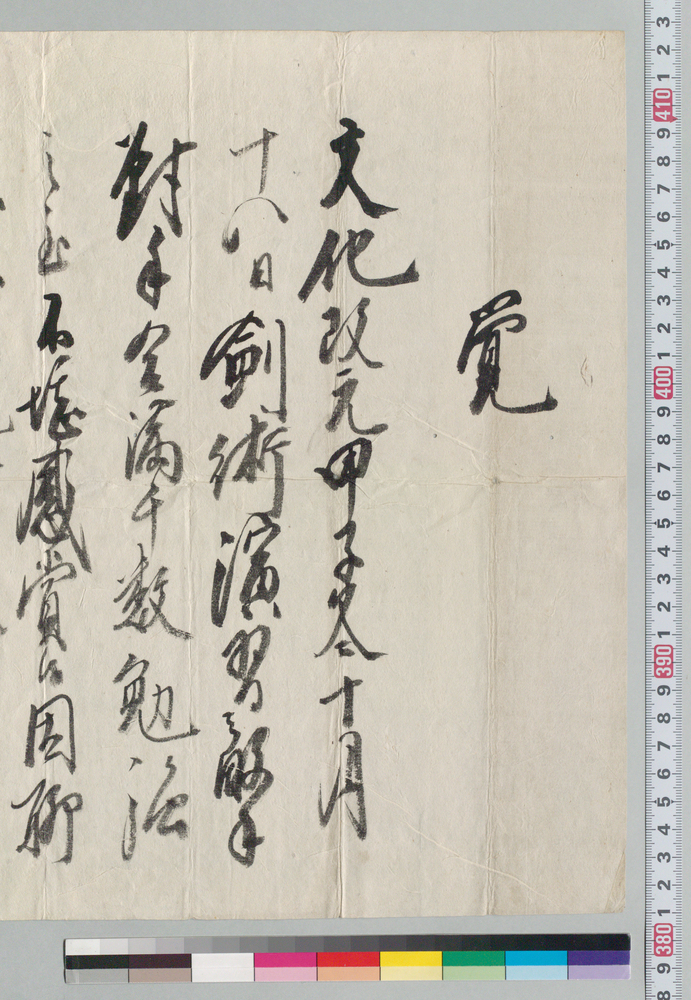 覚
文化改元甲子冬十月
十八日劍術演習之敵手
對手全満千数勉強
之至不堪感賞候因聊
3
2
1
410
9
8
7
6
5
4
3
2
1
400
9
8
7
6
5
4
3
2
1
390
9
8
7
6
5
4
3
2
1
380
9
8